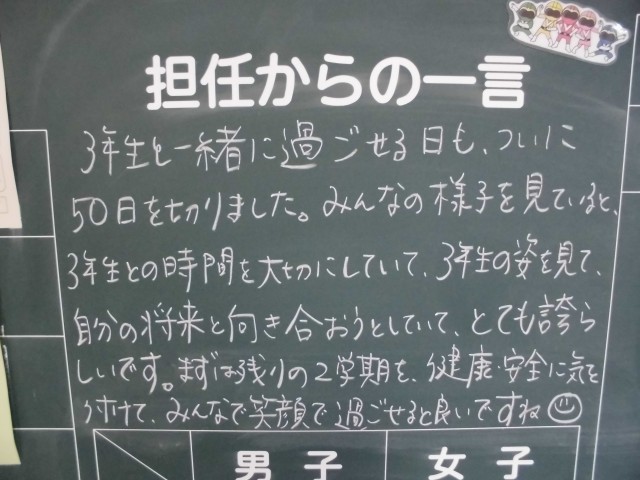 担任からの一言
3年生と一緒に過ごせる日も、ついに
50日を切りました。みんなの様子を見ていると、
3年生との時間を大切にしていて、3年生の姿を見て、
自分の将来と向き合おうとしていて、とても誇ら
しいです。まずは残りの2学期を、健康・安全に気を
付けて、みんなで笑顔で過ごせると良いですね
男子 女子